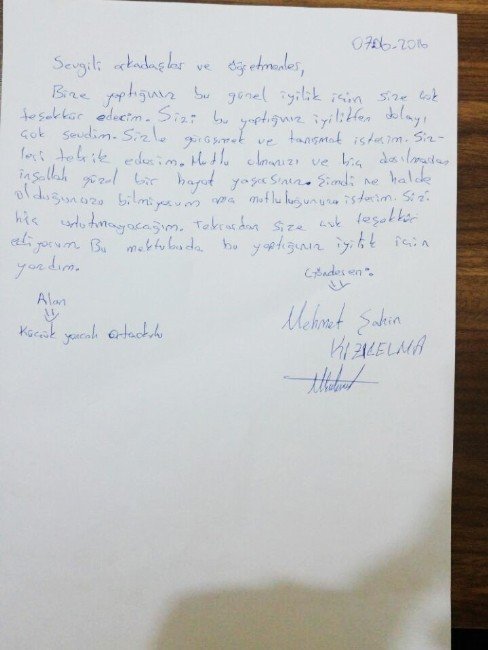 07.06-2016
Sevgili arkadaşlar ve öğretmenler,
Bize yaptığınız bu güzel iyilik için size çok
teşekkür ederim. Sizi bu yaptığınız iyilikten dolayı
çok sevdim. Sizle görüşmek ve tanışmat isterim. Siz-
leri tebrik ederim. Mutlu olmanızı ve hiç darılmadan
inşallah güzel bir hayat yaşarsınız. Şimdi ne halde
olduğunuzu bilmiyorum ama mutluluğunuzu isterim. Sizi
hiç unutmayacağım. Tekrardan size çok teşekkür
ediyorum Bu mektubuda bu yaptığınız iyilik için
yazdım.
Gönderen:
Alan
Küçük yoncalı ortaokulu
Mehmet Şahin
KIZILELMA